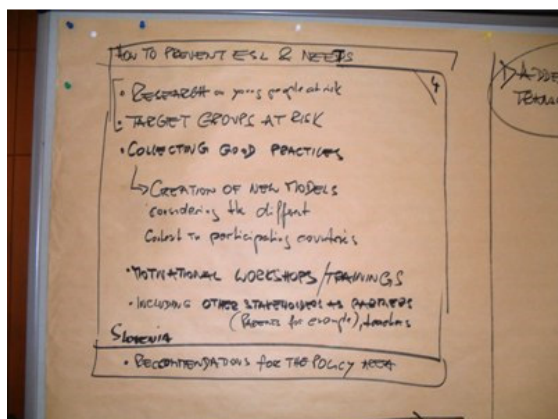 HOW TO PREVENT ESL & NEETS
4
• RESEARCH on young people at risk
• TARGET GROUPS AT RISK
• COLLECTING GOOD PRACTICES
↳ CREATION OF NEW MODELS
considering the diffent
Contest to participating countries
• MOTIVATIONAL WORKSHOPS/TRAININGS
• INCLUDING OTHER STAKEHOLDERS AS PARTNERS
(PARENTS for example), teachers
SLOVENIA
• RECCOMENDATIONS FOR THE POLICY AREA